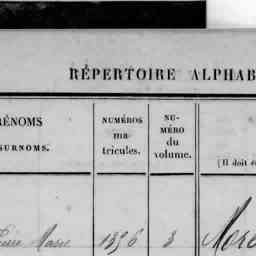 RÉPERTOIRE ALPHAB
RÉNOMS
SURNOMS.
NUMÉROS
ma-
tricules.
NU-
MÉRO
du
volume.
(Il doit ê
Marie 1396 3 More